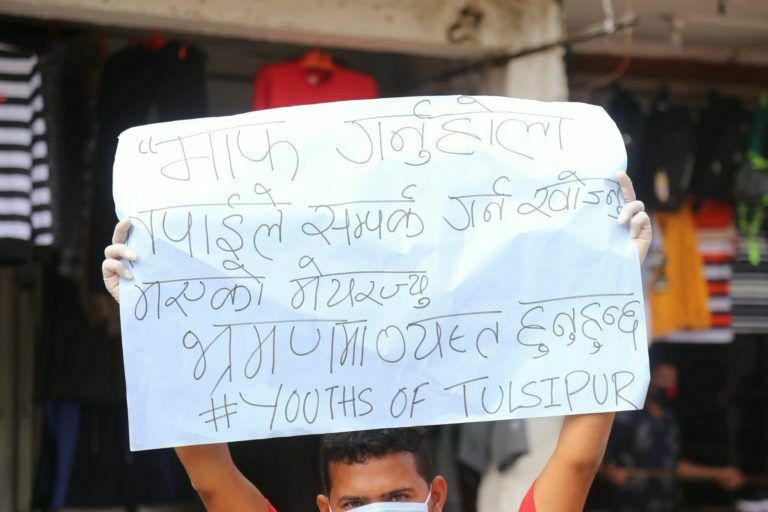 "माफ गर्नुहोला
तपाईले सम्पर्क गर्न खोज्नु
भएको मेयरज्यु
भ्रमणमा व्यस्त हुनुहुन्छ
#YOUTHS OF TULSIPUR